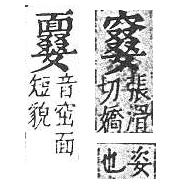 張滑
切嬌
姿
也
音窋面
短貌